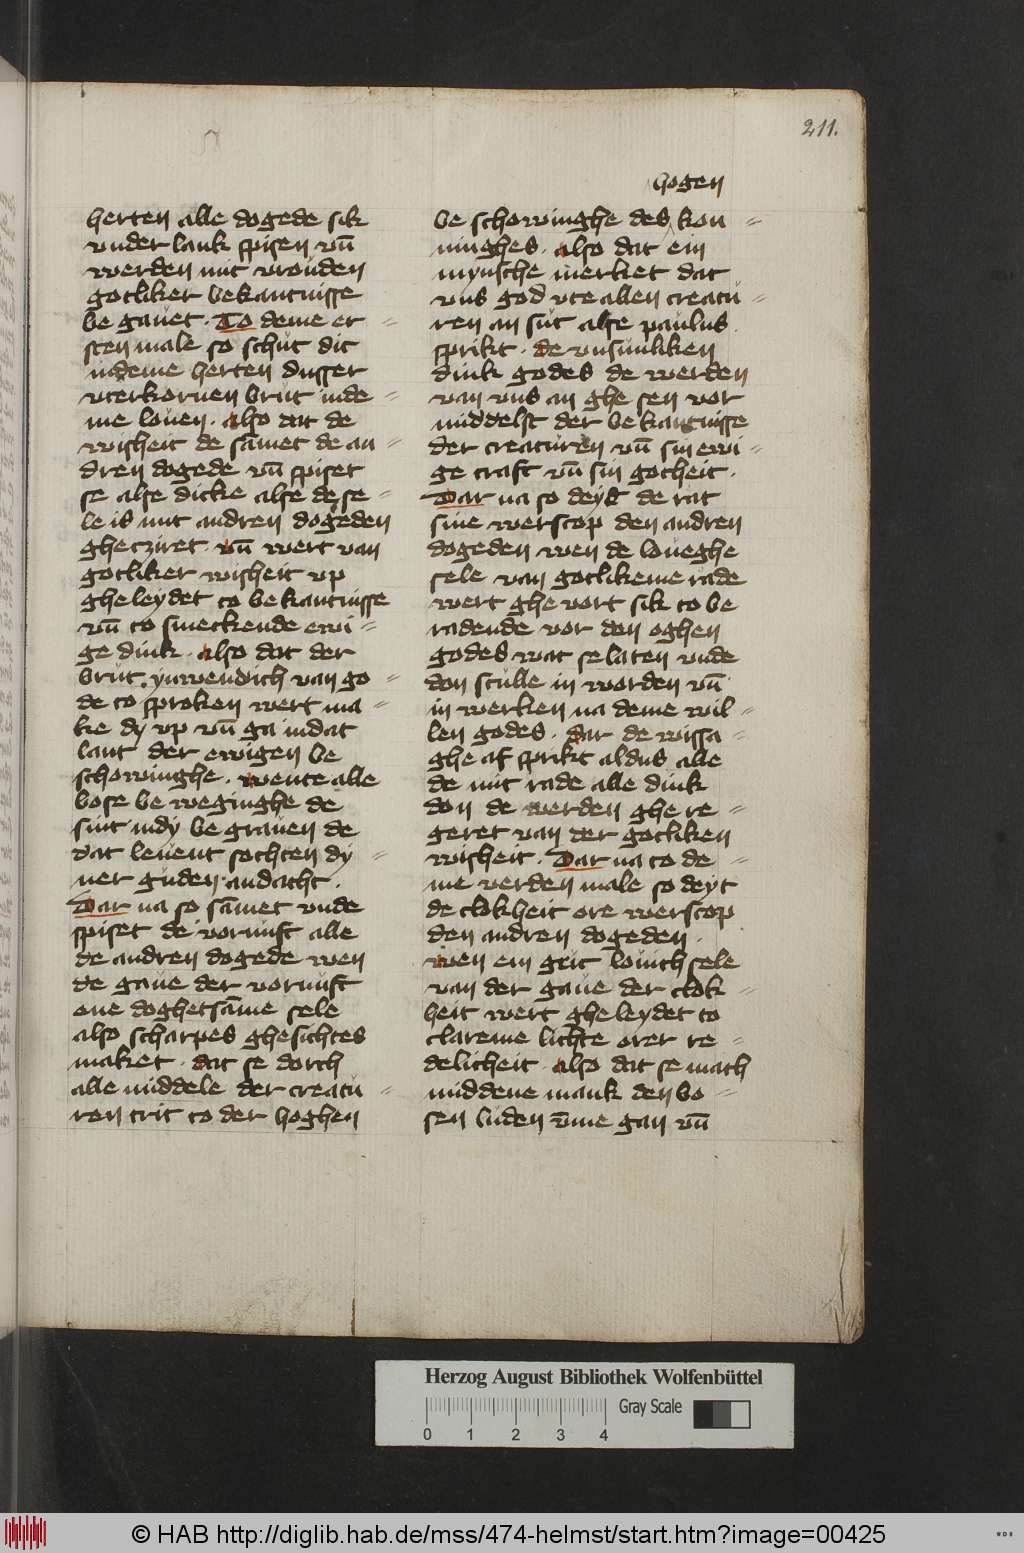 211.
hogen
herten alle dogede sik
vnder lank spisen vn̄
werden mit vrouͤden
gotliker bekantnisse
be gauet · To deme er =
sten male so schuͤt dit
indeme herten dusser
vterkornen brut inde =
me louen · also dat de
wisheit de sāmet de an =
dren dogede vn̄ spiset
se alse dicke alse de se =
le is mit andren dogeden
ghecziret · vn̄ wert van
gotliker wisheit vp
gheleydet to bekantnisse
vn̄ to smeckende ewi =
ge dink · also dat der
brut ynwendich van go =
de to sproken wert ma =
ke dy vp vn̄ ga indat
lant der ewigen be
schowinghe · wente alle
bose be weginghe de
sint indy be grauen de
dat leuent sochten dy =
ner guden andacht ·
Dar na so sāmet vnde
spiset de vornuft alle
de andren dogede wen
de gaue der vornuft
one doghetsāme sele
also scharpes ghesichtes
maket · dat se dorch
alle middele der creatu =
ren trit to der hoghen
be schowinghe des kon =
ninghes · also dat ein
mynsche merket dat
vns god vte allen creatu =
ren an suͤt alse paulus
sprikt · de vnsinliken
dink godes de werden
van vns an ghe sen vor
middelst der be kantnisse
der creaturen vn̄ sin ewi =
ge craft vn̄ sin gotheit ·
Dar na so deyt de rat
sine werscop den andren
dogeden wen de loueghe
sele van gotlikeme rade
wert ghe vort sik to be
radende vor den oghen
godes wat se laten vnde
don sculle in worden vn̄
in werken na deme wil =
len godes · dar de wissa =
ghe af sprikt aldus alle
de mit rade alle dink
don de werden ghe re =
geret van der gotliken
wisheit · Dar na to de =
me verden male so deyt
de clokheit ore werscop
den andren dogeden ·
wen ein gut louich sele
van der gaue der clok =
heit wert gheleydet to
clareme lichte orer re =
delicheit · also dat se mach
middene mank den bo =
sen luden v̄me gan vn̄
Herzog August Bibliothek Wolfenbüttel
Gray Scale
0 1 2 3 4
© HAB http://diglib.hab.de/mss/474-helmst/start.htm?image=00425